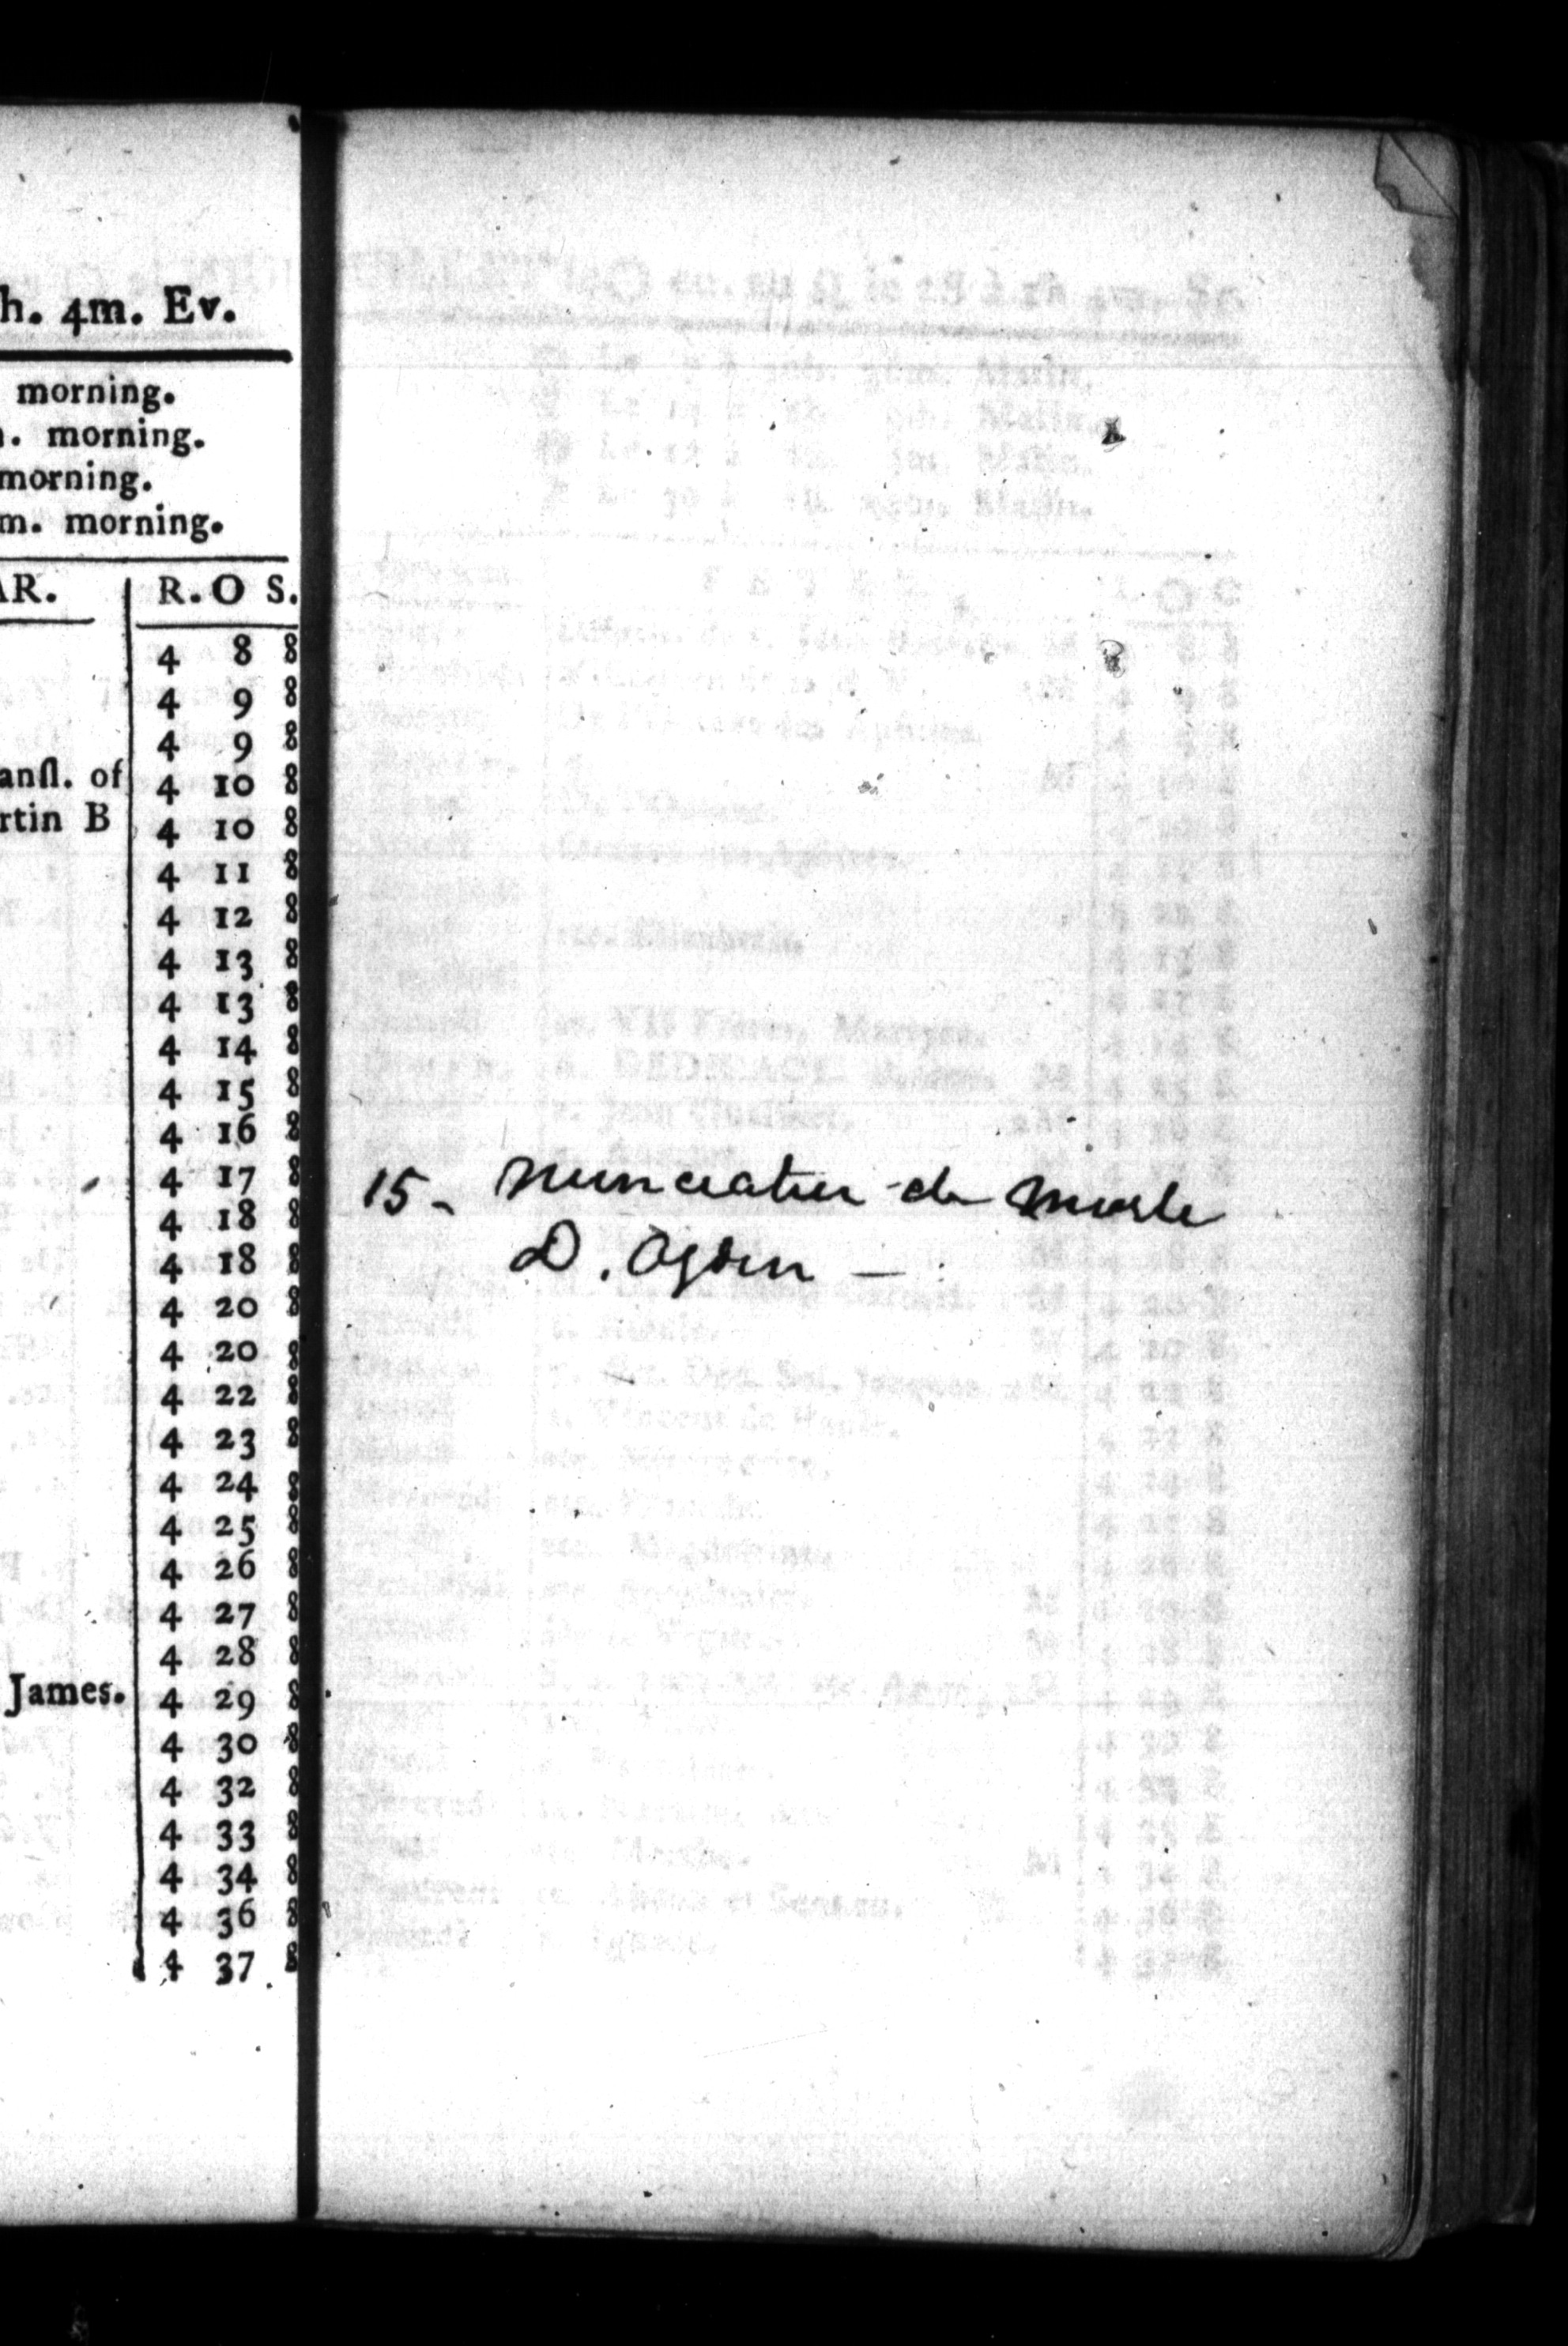 h. 4m. Ev.
morning.
. morning.
morning.
m. morning.
AR. R. O S.
4 8 8
4 9 8
4 9 8
anſl. of 4 10 8
rtin B 4 10 8
4 11 8
4 12 8
4 13 8
4 13 8
4 14 8
4 15 8
4 16 8
4 17 8
4 18 8
4 18 8
4 20 8
4 20 8
4 22 8
4 23 8
4 24 8
4 25 8
4 26 8
4 27 8
4 28 8
James. 4 29 8
4 30 8
4 32 8
4 33 8
4 34 8
4 36 8
4 37 8
15 - de
D. Ogden —